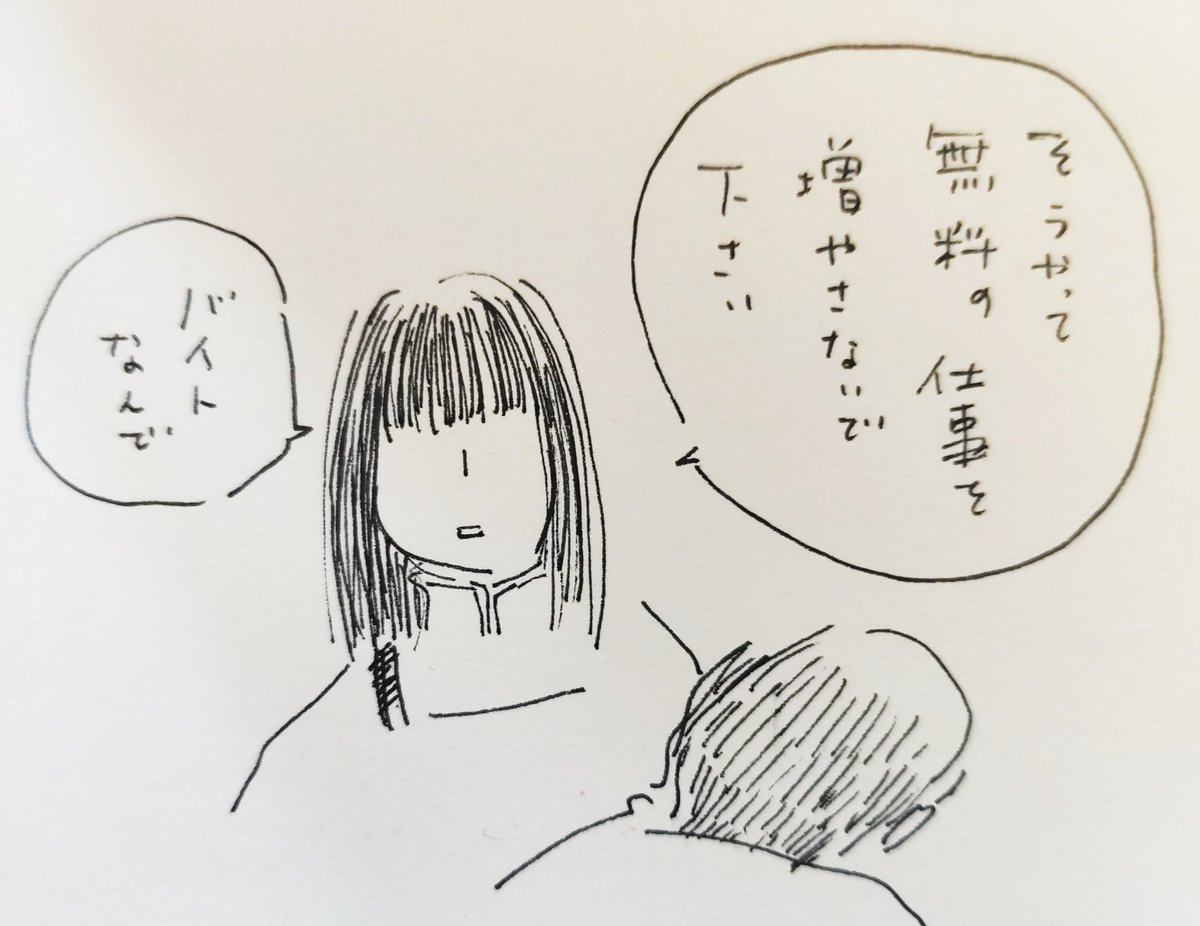 そうやって
無料の仕事を
増やさないで
下さい
バイト
なんで